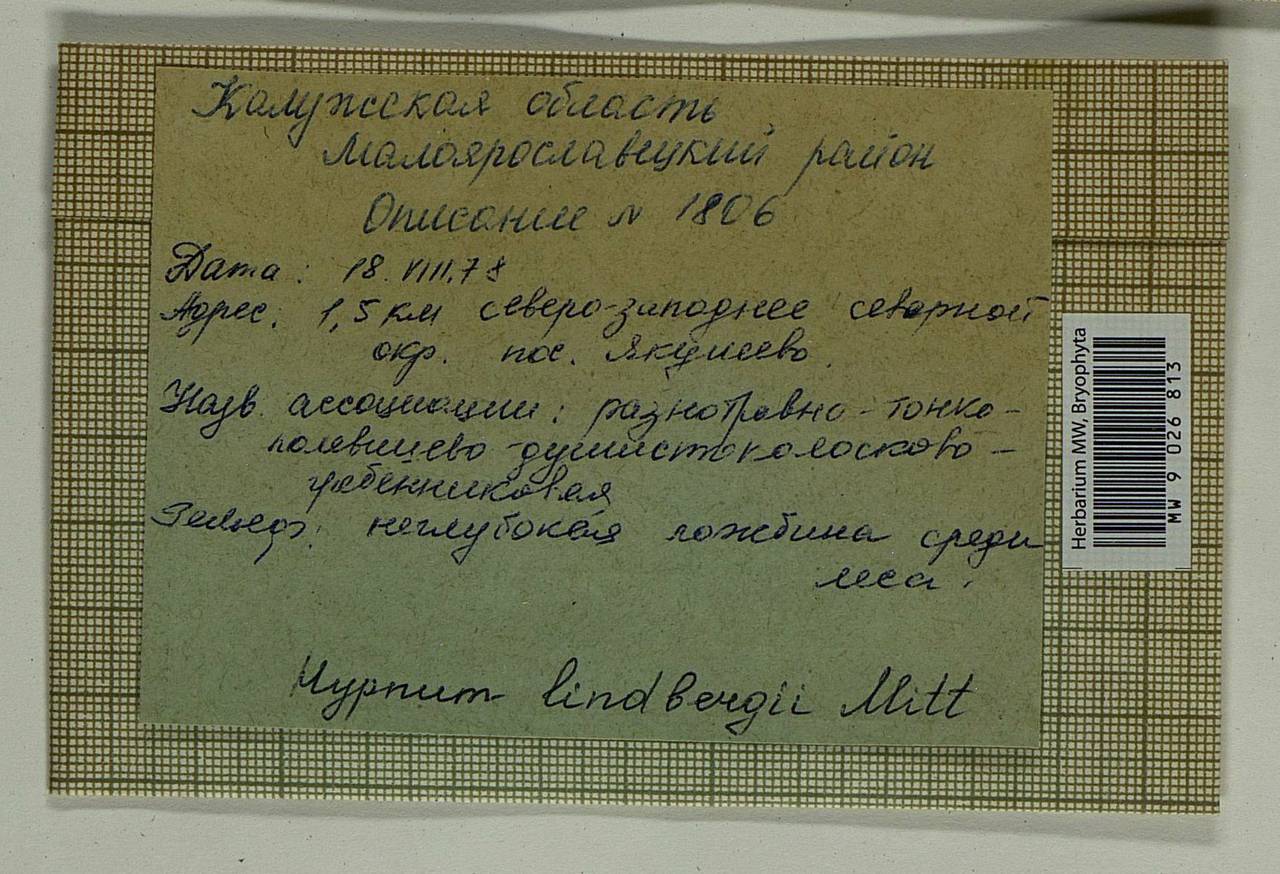 Калужская область
Малоярославецкий район
Описание N 1806
Дата: 18.VIII.78
Адрес: 1,5 км северо-западнее северной
окр. пос. Якушево.
Назв. ассоциации: разнотравно-тонко-
полевицево-душистоколосково-
гребенниковая
Рельеф: неглубокая ложбина среди
леса.
Hypnum lindbergii Mitt
Herbarium MW, Bryophyta
MW 9 026 813